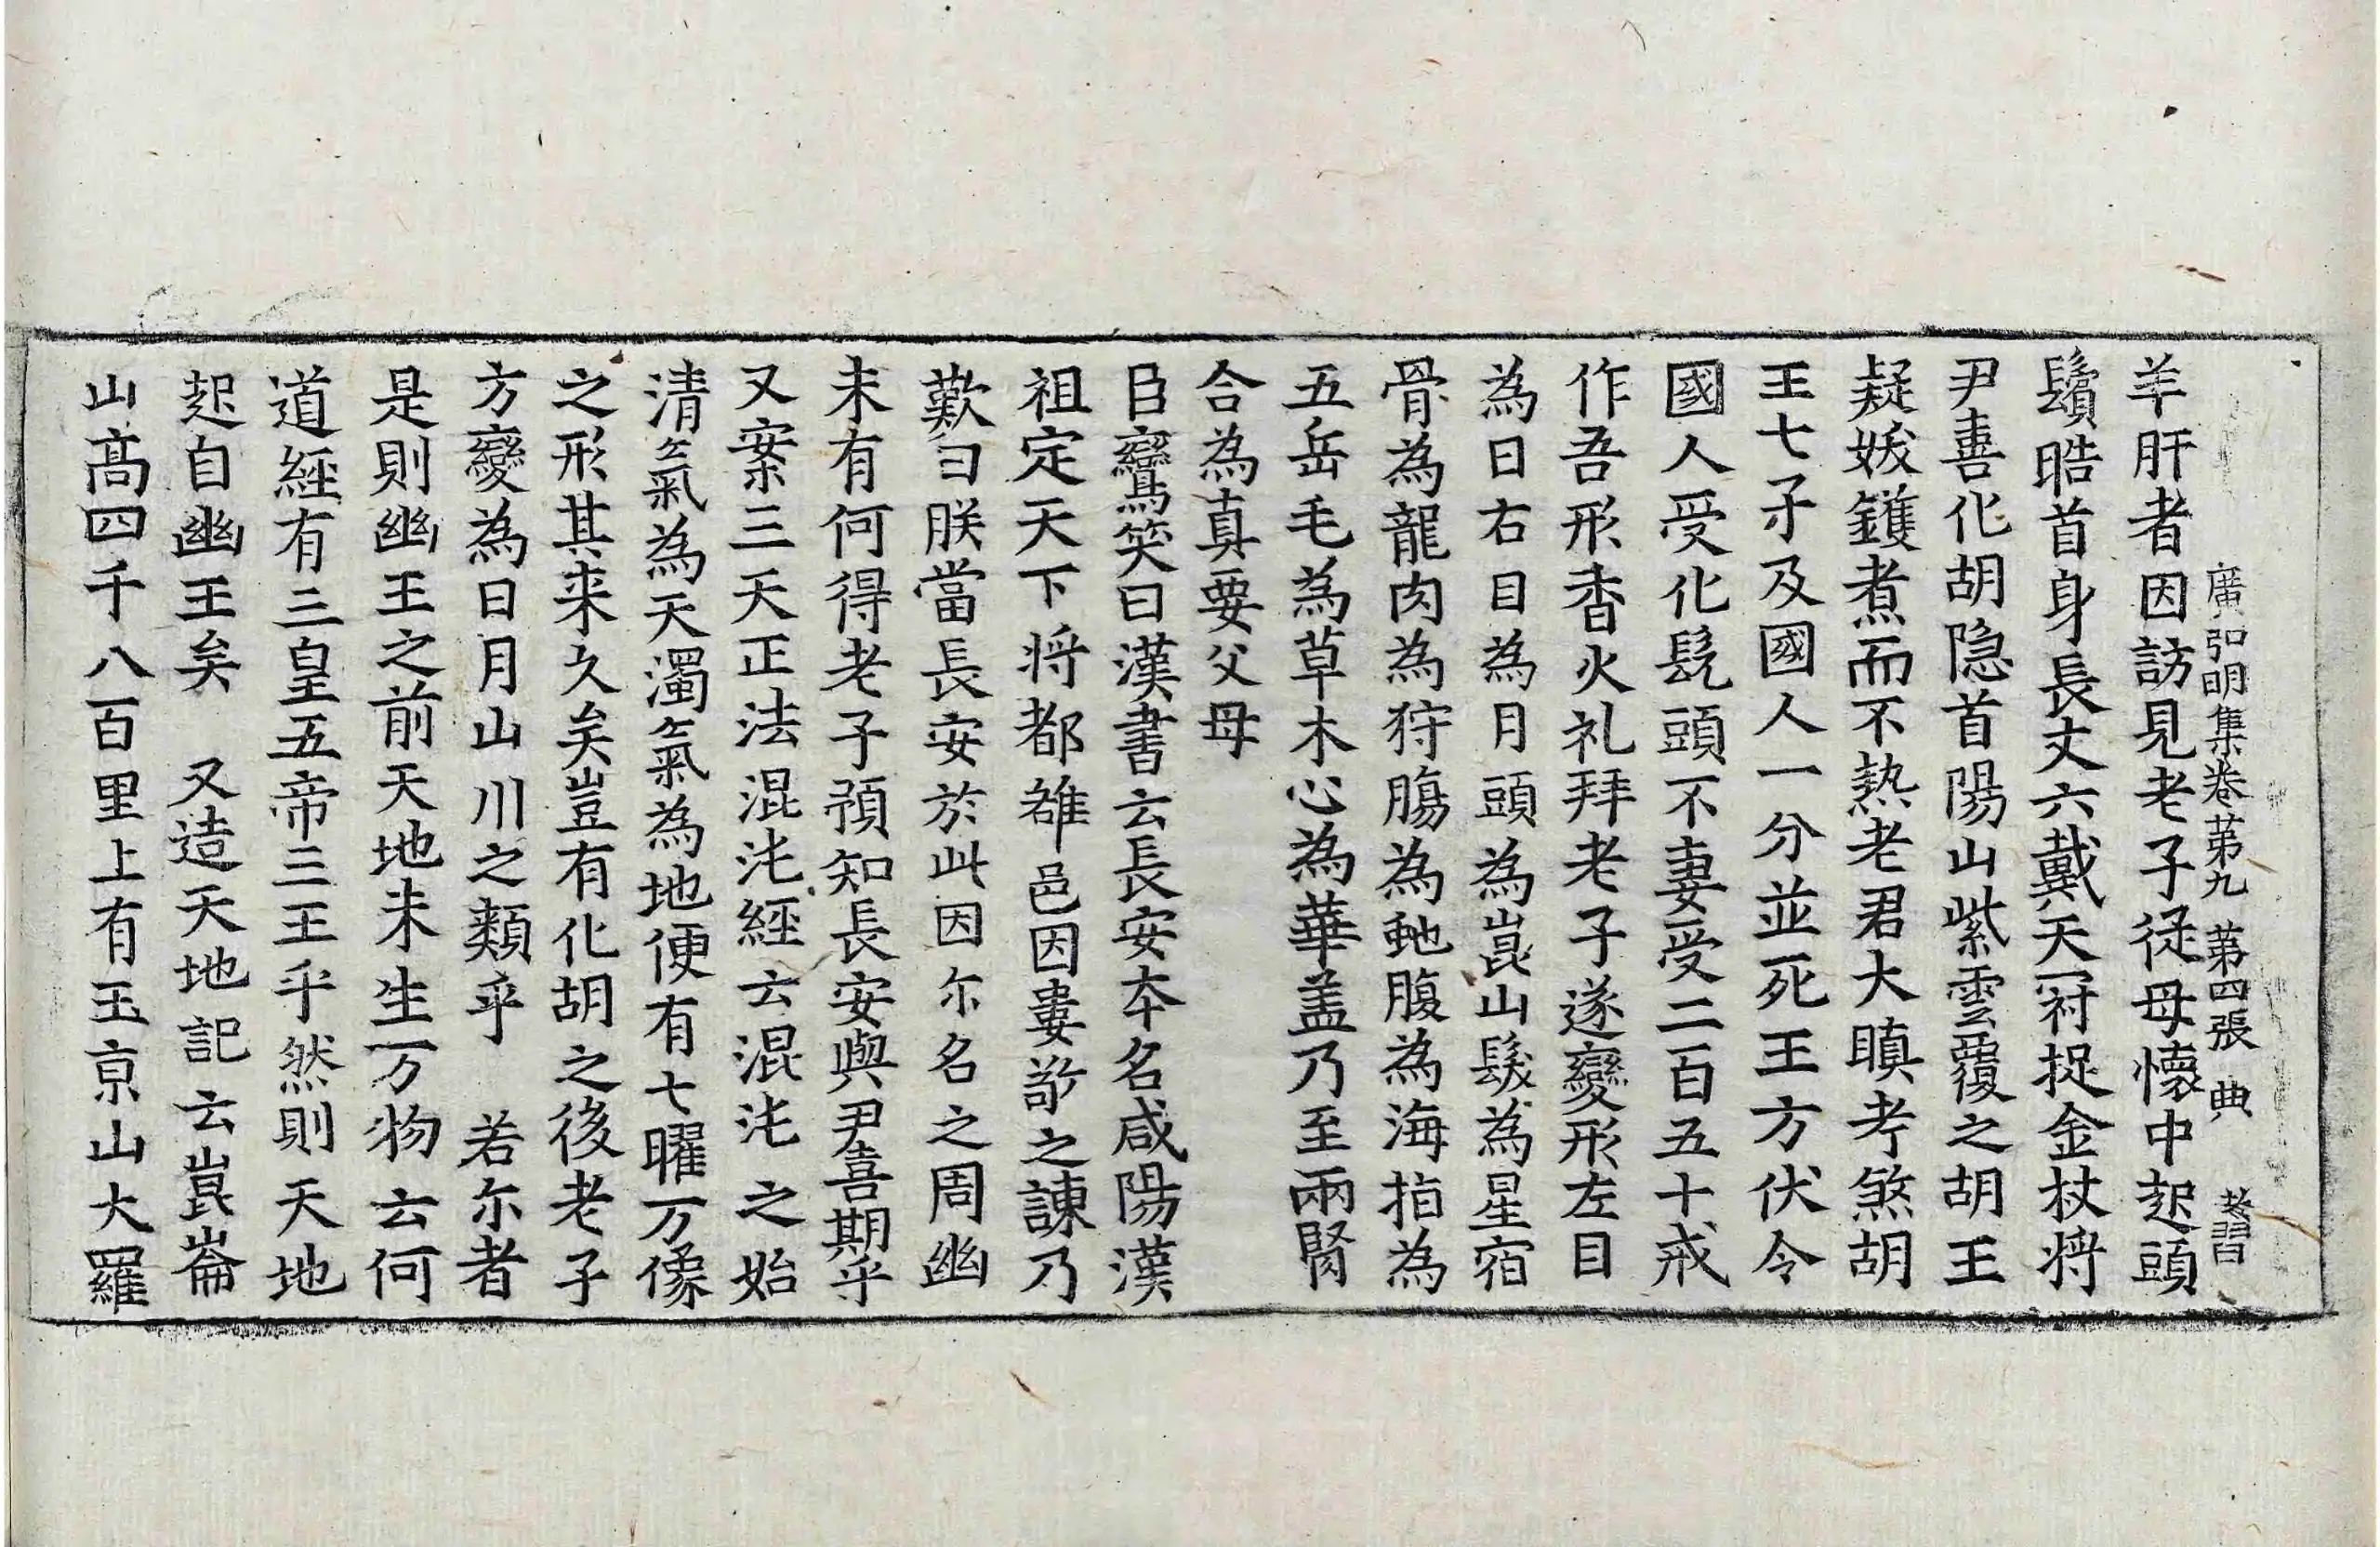 廣弘明集卷第九 第四張 典 孝習
羊肝者因訪見老子從母懷中起頭
鬚晧首身長丈六戴天冠捉金杖將
尹喜化胡隱首陽山紫雲覆之胡王
疑妖鑊煮而不熱老君大瞋考煞胡
王七子及國人一分並死王方伏令
國人受化髡頭不妻受二百五十戒
作吾形香火礼拜老子遂變形左目
為日右目為月頭為崑山髮為星宿
骨為龍肉為狩腸為虵腹為海指為
五岳毛為草木心為華盖乃至兩腎
合為真要父母
臣鸞笑曰漢書云長安本名咸陽漢
祖定天下將都雒邑因婁敬之諫乃
歎曰朕當長安於此因尔名之周幽
未有何得老子預知長安與尹喜期乎
又案三天正法混沌經云混沌之始
清氣為天濁氣為地便有七曜万像
之形其来久矣豈有化胡之後老子
方變為日月山川之類乎 若尔者
是則幽王之前天地未生万物云何
道經有三皇五帝三王乎然則天地
起自幽王矣 又造天地記云崑崙
山高四千八百里上有玉京山大羅